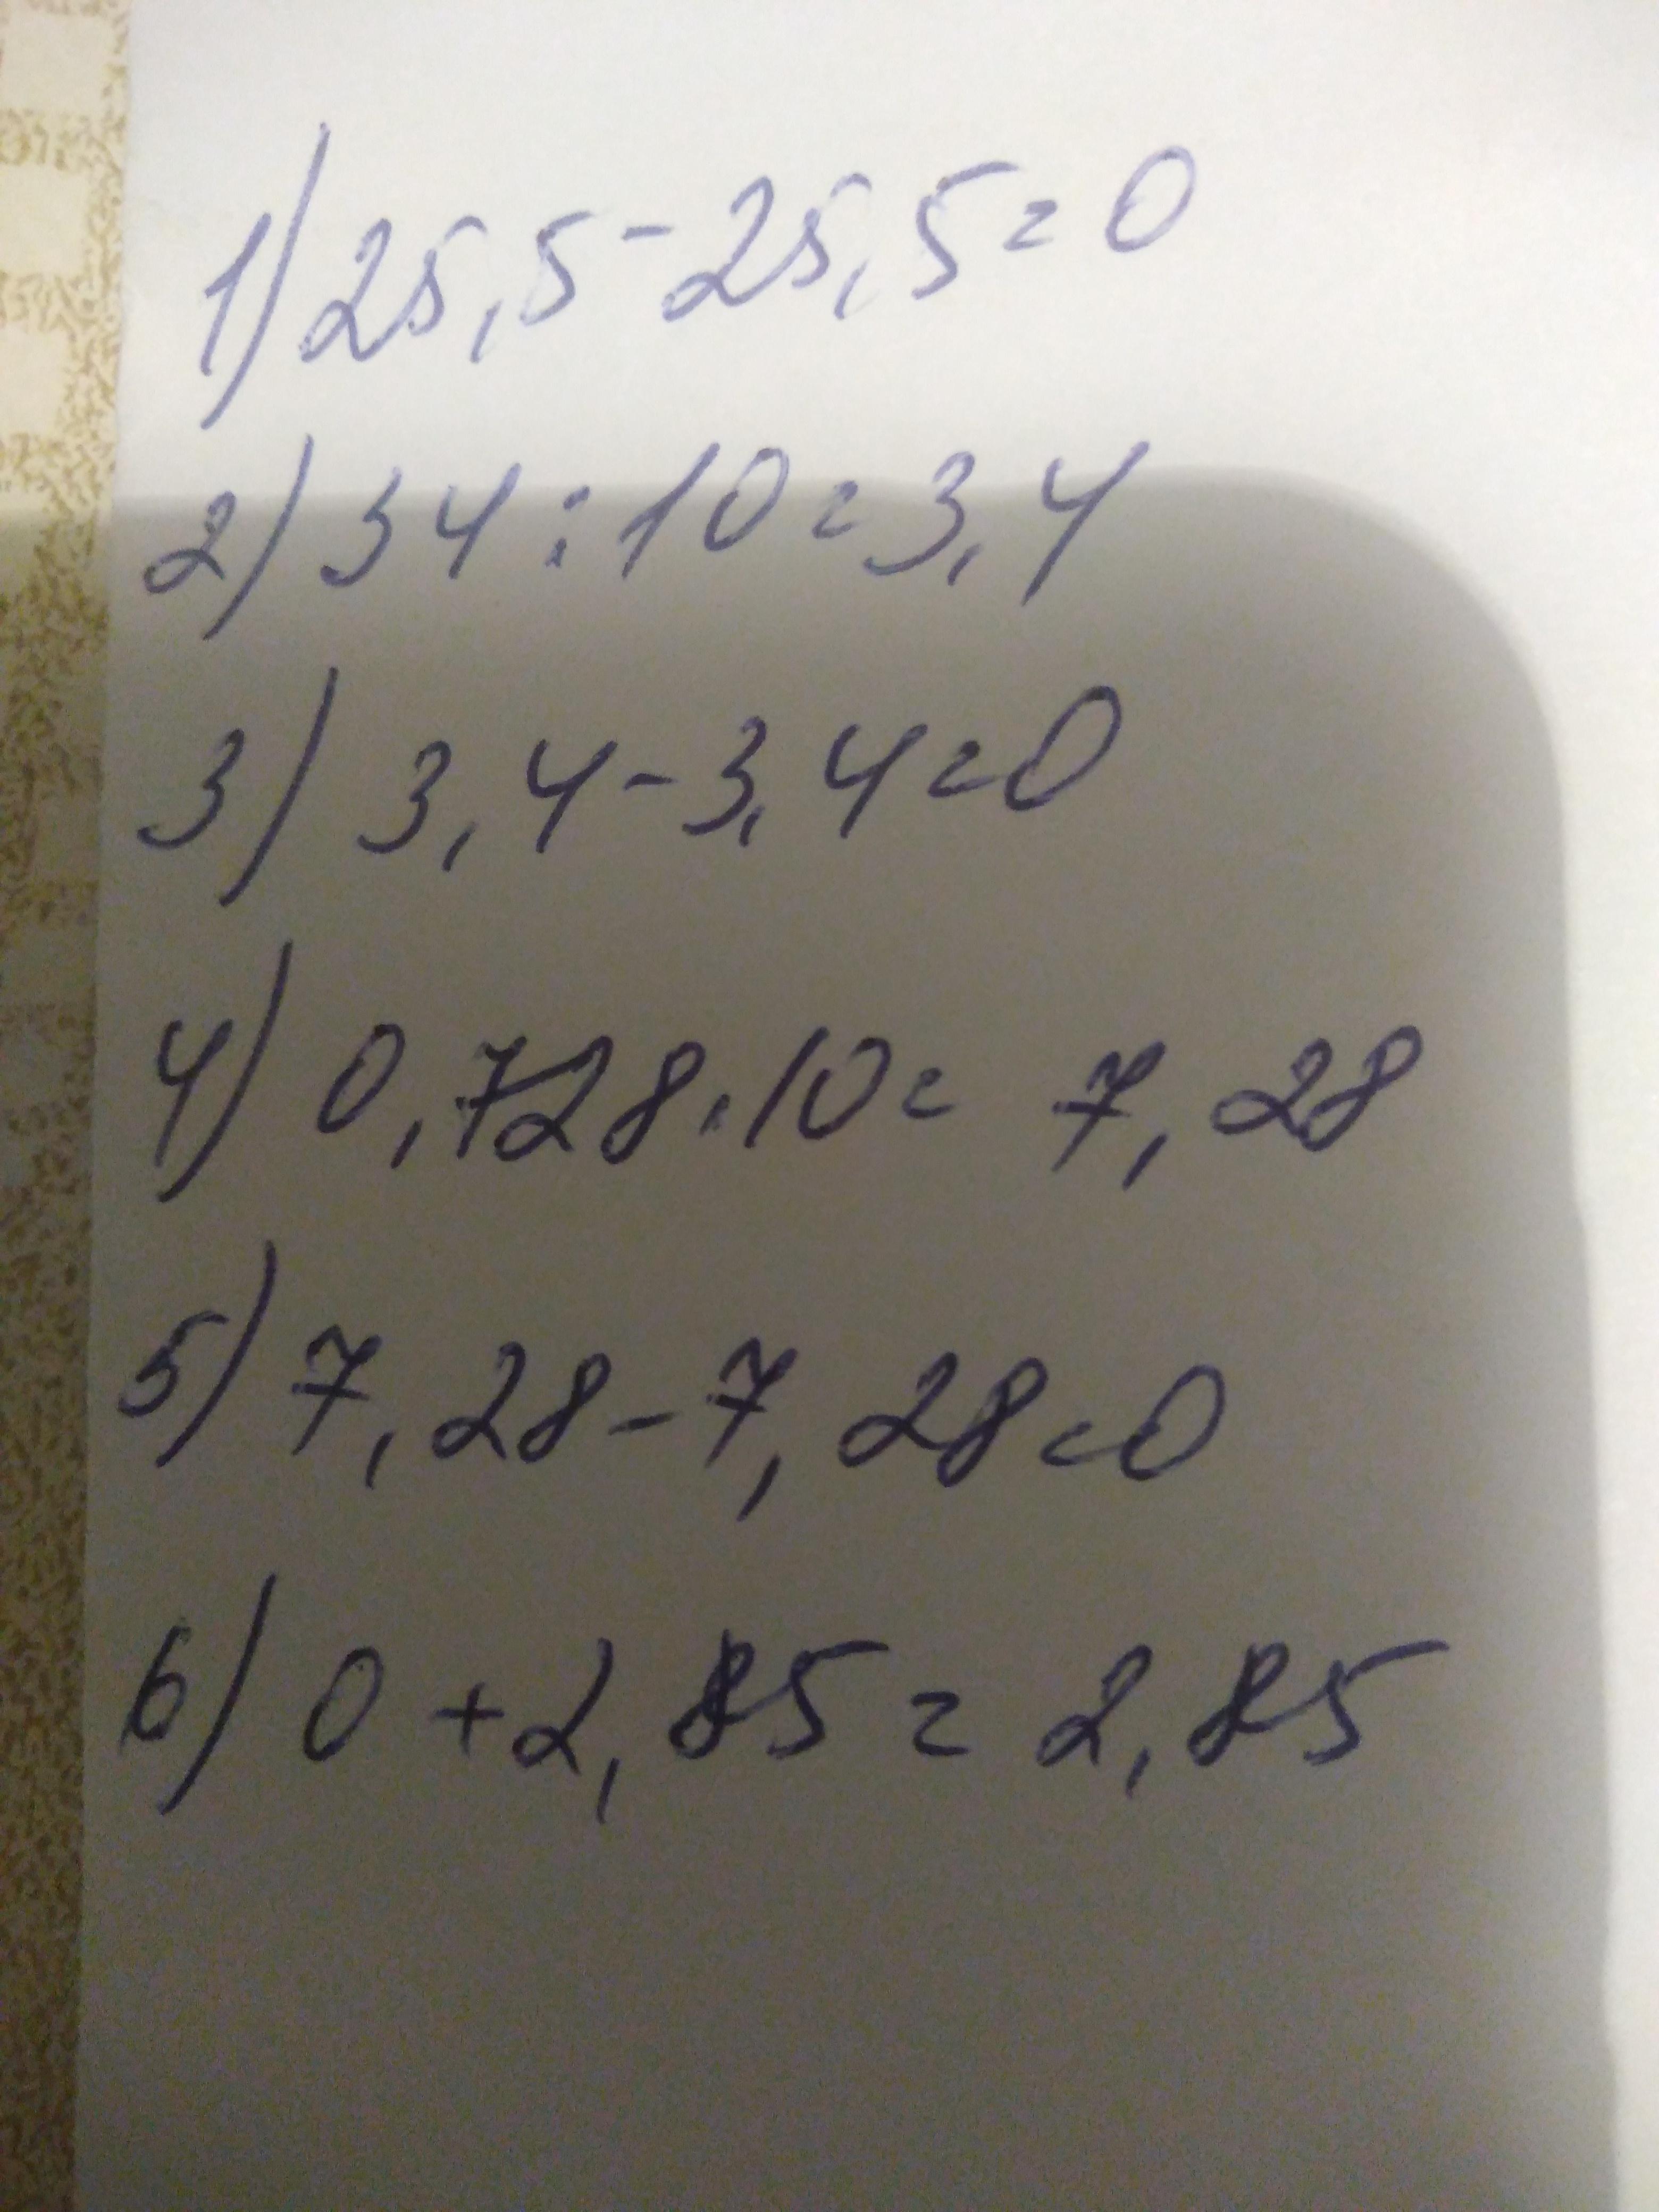 1) 25,5-25,5=0
2) 34:10=3,4
3) 3,4-3,4=0
4) 0,728·10= 7,28
5) 7,28-7,28=0
6) 0+2,85=2,85